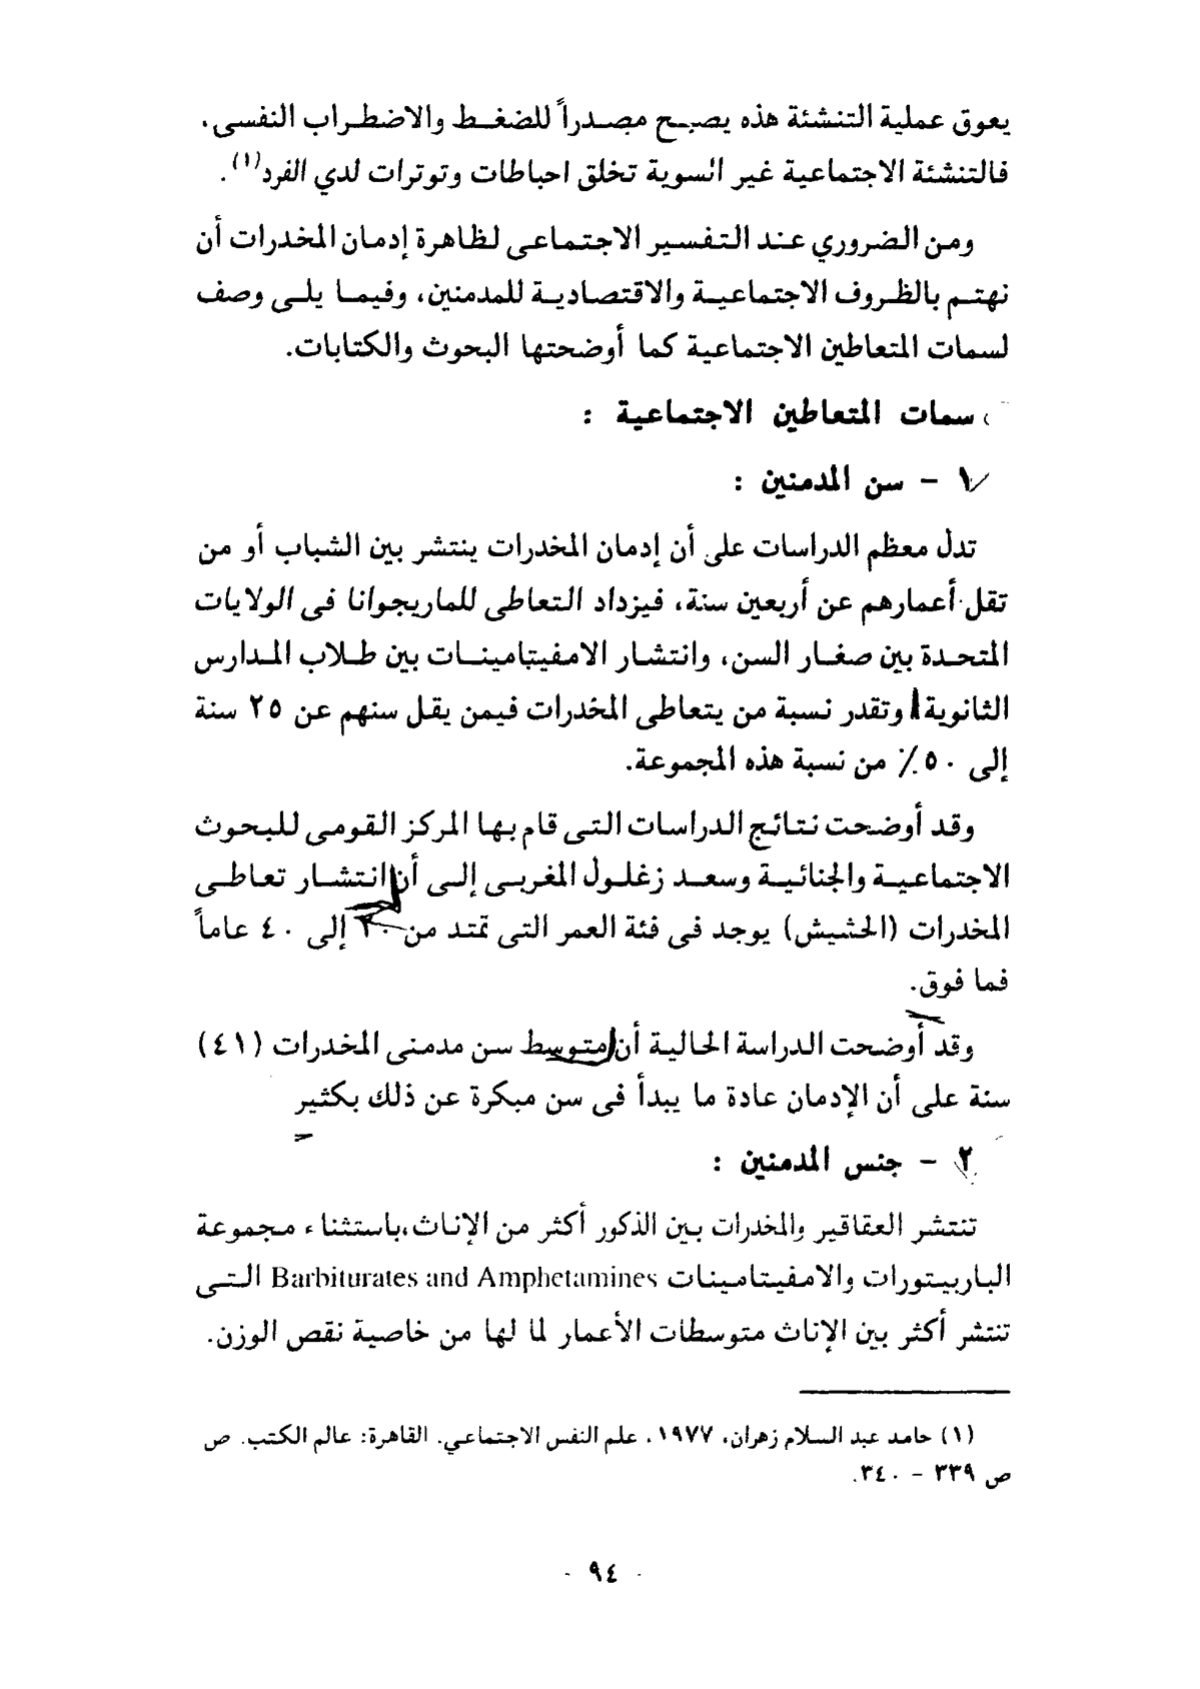 يعوق عملية التنشئة هذه يصبح مصدراً للضغط والاضطراب النفسى،
فالتنشئة الاجتماعية غير السوية تخلق احباطات وتوترات لدي الفرد(١).
ومن الضروري عند التفسير الاجتماعى لظاهرة إدمان المخدرات أن
نهتم بالظروف الاجتماعية والاقتصادية للمدمنين، وفيما يلى وصف
لسمات المتعاطين الاجتماعية كما أوضحتها البحوث والكتابات.
سمات المتعاطين الاجتماعية :
١ - سن المدمنين :
تدل معظم الدراسات على أن إدمان المخدرات ينتشر بين الشباب أو من
تقل أعمارهم عن أربعين سنة، فيزداد التعاطى للماريجوانا فى الولايات
المتحدة بين صغار السن، وانتشار الامفيتامينات بين طلاب المدارس
الثانوية وتقدر نسبة من يتعاطى المخدرات فيمن يقل سنهم عن ٢٥ سنة
إلى ٥٠٪ من نسبة هذه المجموعة.
وقد أوضحت نتائج الدراسات التى قام بها المركز القومى للبحوث
الاجتماعية والجنائية وسعد زغلول المغربى إلى أن انتشار تعاطى
المخدرات (الحشيش) يوجد فى فئة العمر التى تمتد من إلى ٤٠ عاماً
فما فوق.
وقد أوضحت الدراسة الحالية أن متوسط سن مدمنى المخدرات (٤١)
سنة على أن الإدمان عادة ما يبدأ فى سن مبكرة عن ذلك بكثير
٢ - جنس المدمنين :
تنتشر العقاقير والمخدرات بين الذكور أكثر من الإناث،باستثناء مجموعة
الباربيتورات والامفيتامينات Barbiturates and Amphetamines التى
تنتشر أكثر بين الإناث متوسطات الأعمار لما لها من خاصية نقص الوزن.
(١) حامد عبد السلام زهران، ١٩٧٧، علم النفس الاجتماعي. القاهرة: عالم الكتب. ص
ص ٣٣٩ - ٣٤٠.
- ٩٤ -